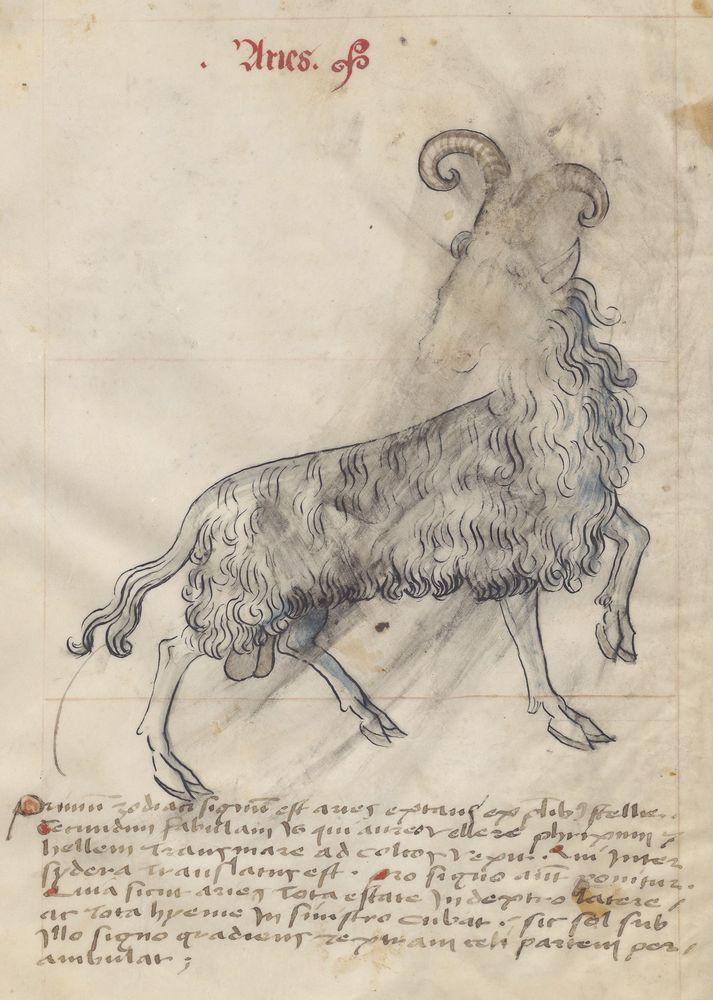 . Aries.
Primū zodiaci signū est aries extans ex plib; stellis.
Secundum fabulam is qui aureo vellere phrixum ⁊
hellem transmare ad colcos vexit. Qui inter
sydera translatus est. Pro signo aūt ponitur.
Quia sicut aries tota estate in dextro latere
ac tota hyeme in sinistro cubat. sic sol sub
illo signo gradiens dextram celi partem per
ambulat;